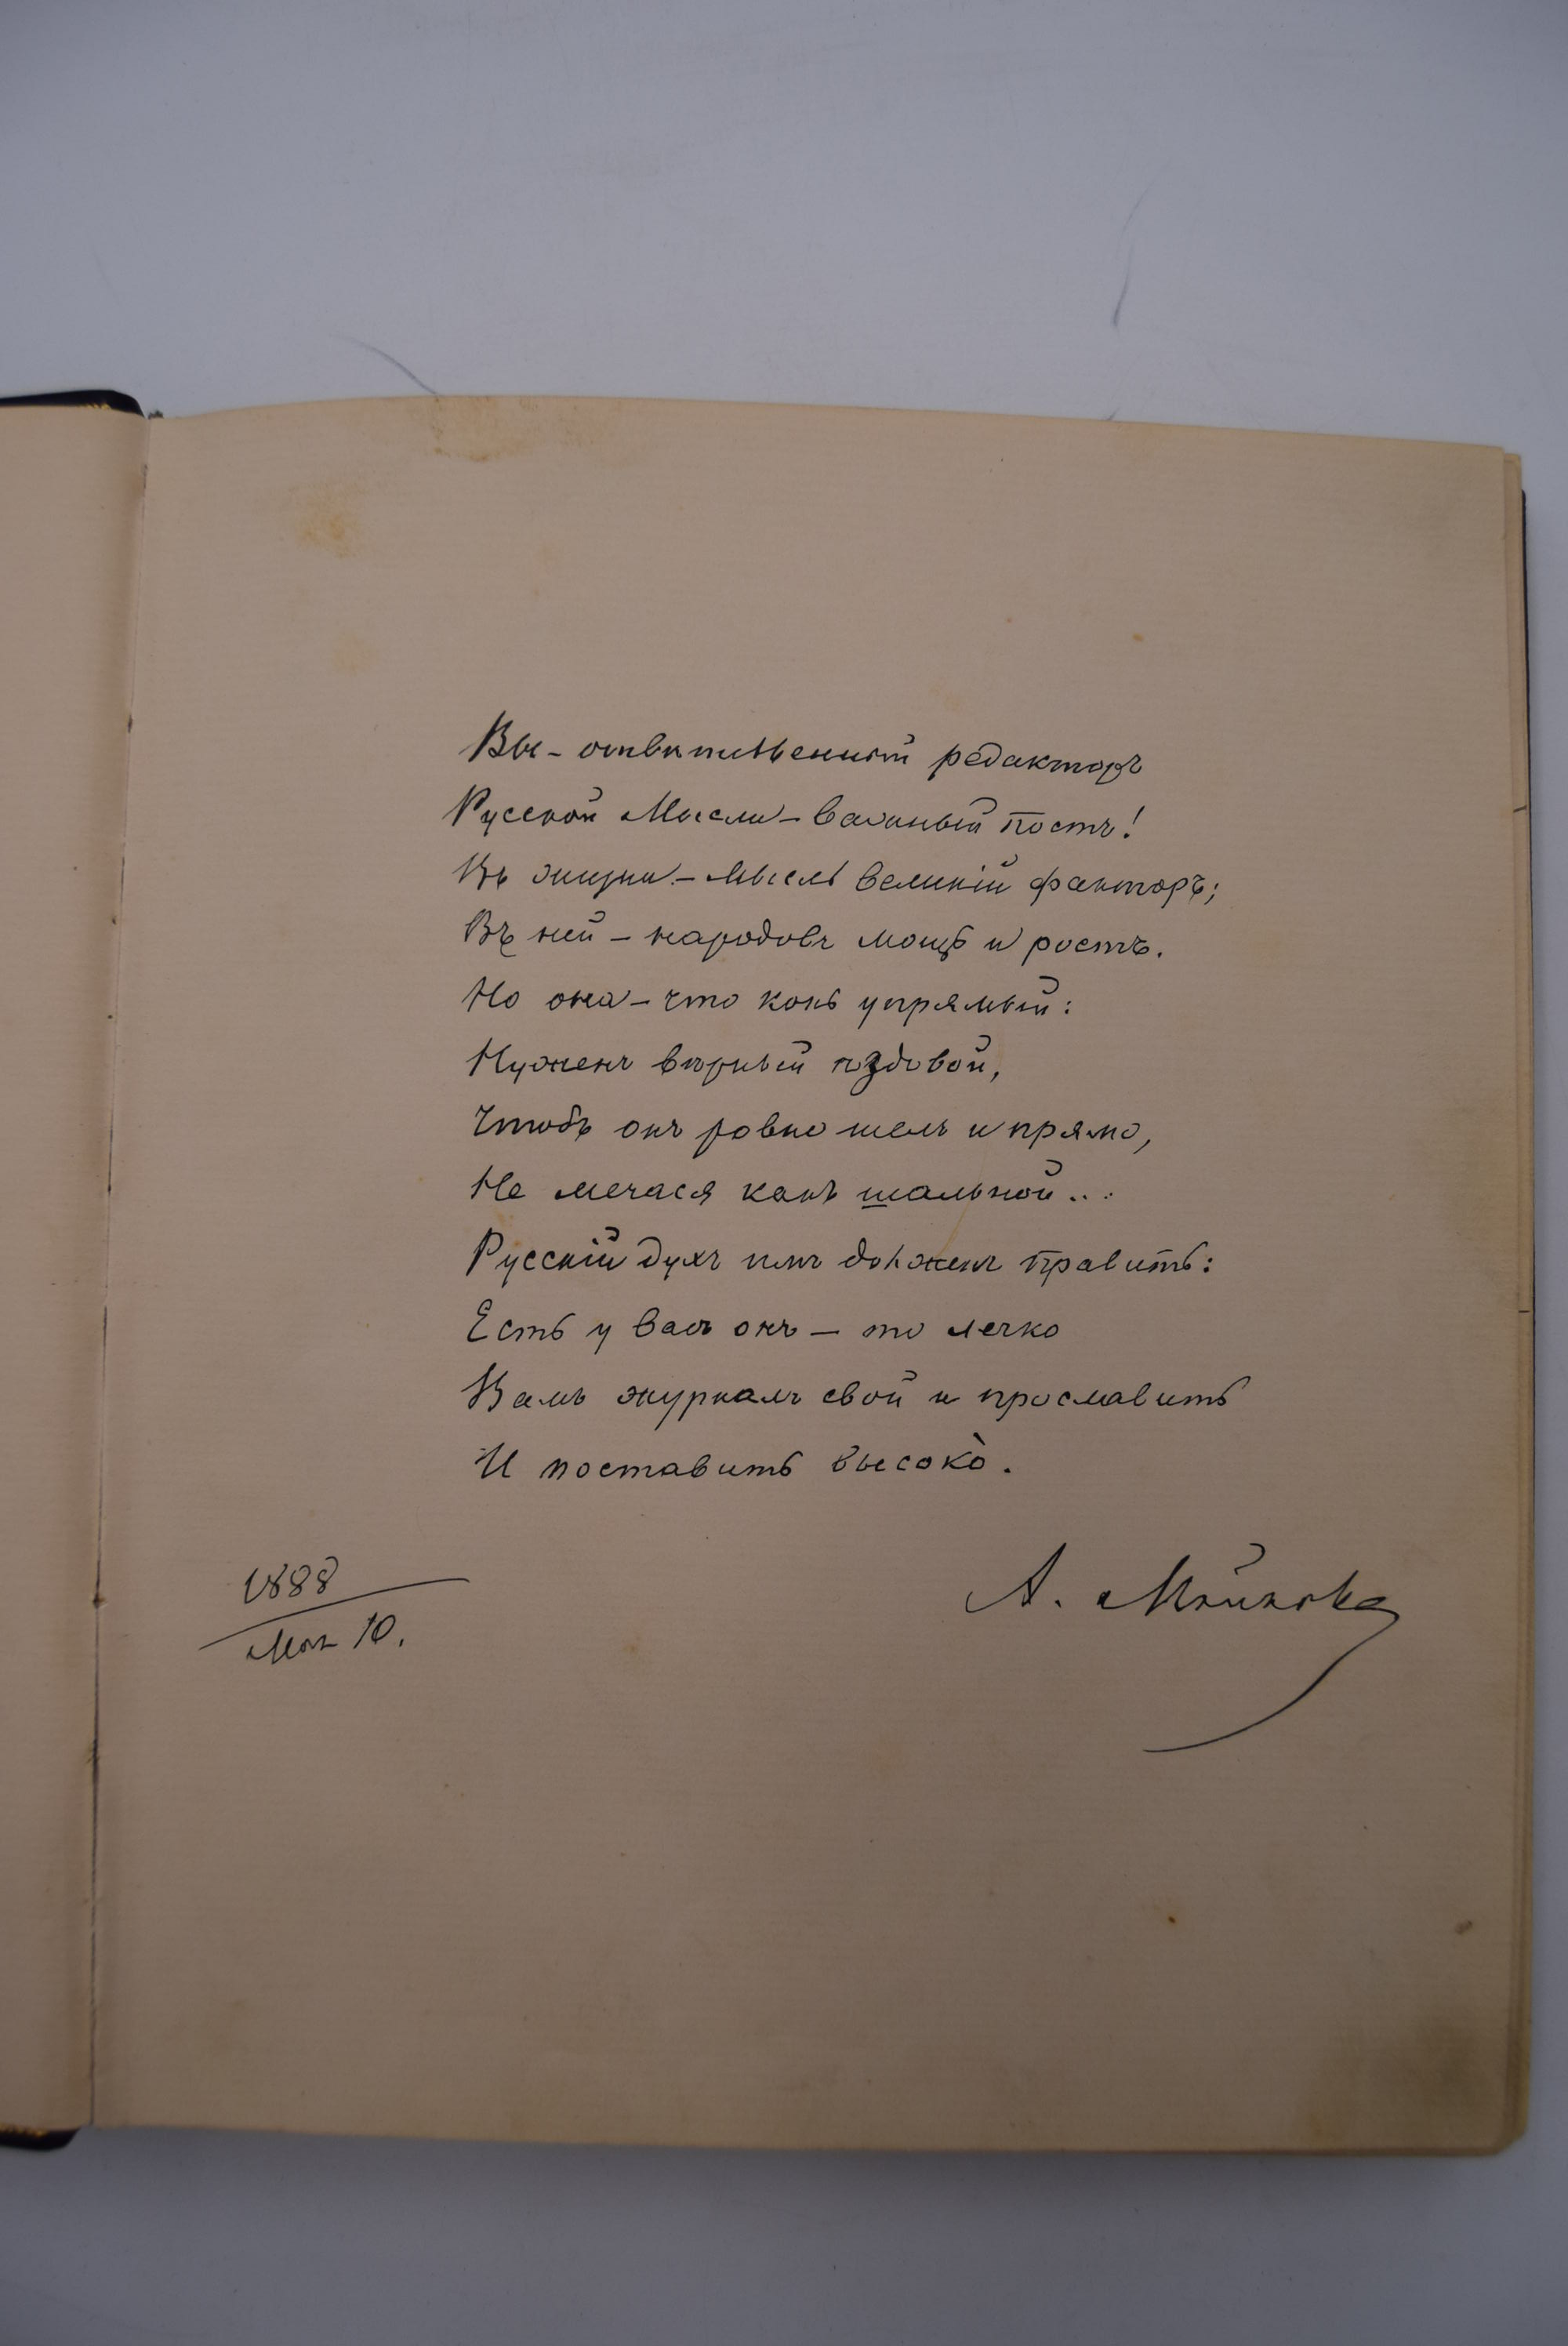 Вы – отвѣтственный редакторъ
Русской Мысли – важный постъ!
Въ жизни – мысль великій факторъ;
Въ ней – народовъ мощь и ростъ.
Но она – что конь упрямый:
Нуженъ вѣрный ѣздовой,
Чтобъ онъ ровно шелъ и прямо,
Не мечася какъ шальной...
Русскій духъ имъ долженъ править:
Есть у васъ онъ – то легко
Вамъ журналъ свой и прославить
И поставить высокò.
А. Майковъ
1888
Мая 10.